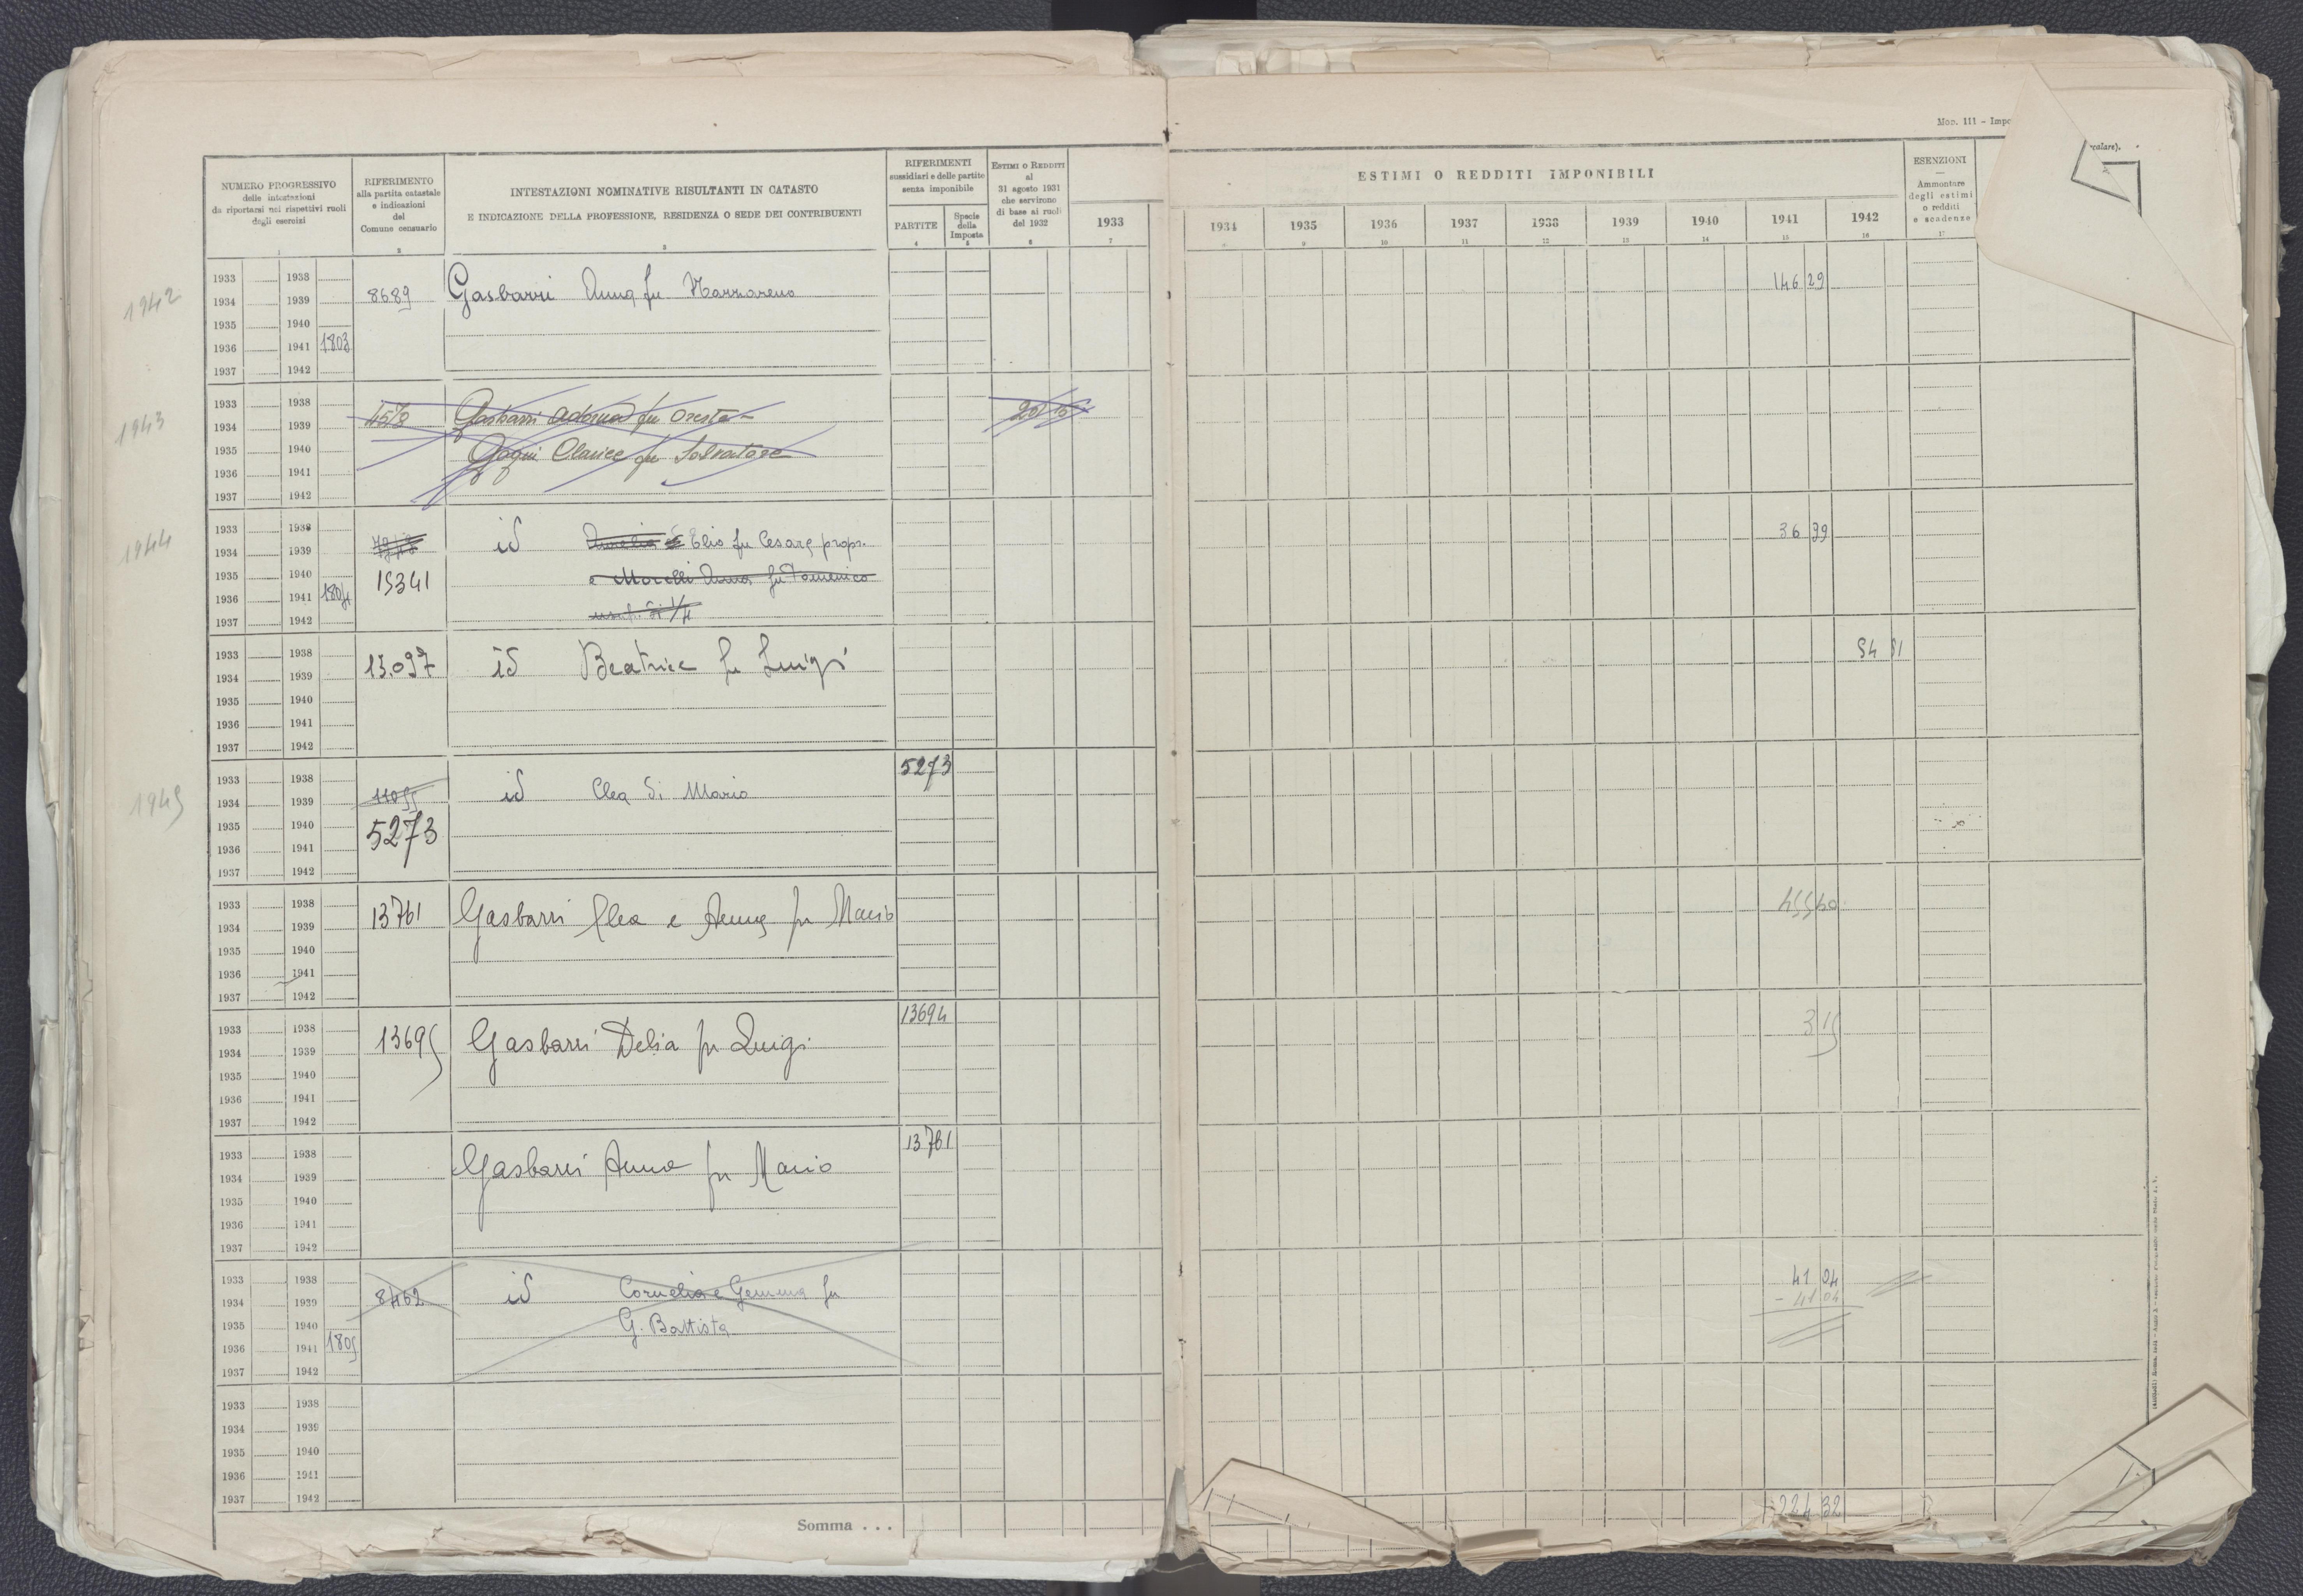 Mod. 111 - Impo
rcolare).
NUMERO PROGRESSIVO
delle intestazioni
da riportarsi nei rispettivi ruoli
degli esercizi
RIFERIMENTO
alla partita catastale
e indicazioni
del
Comune censuario
INTESTAZIONI NOMINATIVE RISULTANTI IN CATASTO
E INDICAZIONE DELLA PROFESSIONE, RESIDENZA O SEDE DEI CONTRIBUENTI
RIFERIMENTI
sussidiari e delle partite
senza imponibile
PARTITE
Specie
della
Imposta
ESTIMI O REDDITI
al
31 agosto 1931
che servirono
di base ai ruoli
del 1932
ESTIMI O REDDITI IMPONIBILI
1933 1934 1935 1936 1937 1938 1939 1940 1941 1942
ESENZIONI
Ammontare
degli estimi
o redditi
e scadenze
1 2 3 4 5 6 7 9 10 11 12 13 14 15 16 17
1942
1933 1938
1934 1939 8689 Gasbarri Anna fu Nazzareno 146 29
1935 1940
1936 1941 1803
1937 1942
1943
1933 1938
1934 1939 4578 Gasbarri Adorna fu Oreste
1935 1940 Clarice fu Salvatore
1936 1941
1937 1942
1944
1933 1938
1934 1939 id Aurelia e Elio fu Cesare propr. 36 99
1935 1940 15341 e Morelli Anna fu Domenico
1936 1941 1804 usuf. di 1/4
1937 1942
1933 1938
1934 1939 13.097 id Beatrice fu Luigi 54 51
1935 1940
1936 1941
1937 1942
1945
1933 1938 5273
1934 1939 11055 id Clea di Mario
1935 1940 5273
1936 1941
1937 1942
1933 1938
1934 1939 13761 Gasbarri Clea e Anna fu Mario 455 40
1935 1940
1936 1941
1937 1942
1933 1938 13694
1934 1939 13695 Gasbarri Delia fu Luigi 3 15
1935 1940
1936 1941
1937 1942
1933 1938 13761
1934 1939 Gasbarri Anna fu Mario
1935 1940
1936 1941
1937 1942
1933 1938 41 04
1934 1939 8462 id Cornelia e Gemma fu - 41 04
1935 1940 G. Battista
1936 1941 1805
1937 1942
1933 1938
1934 1939
1935 1940
1936 1941
1937 1942
Somma . . . 224 32